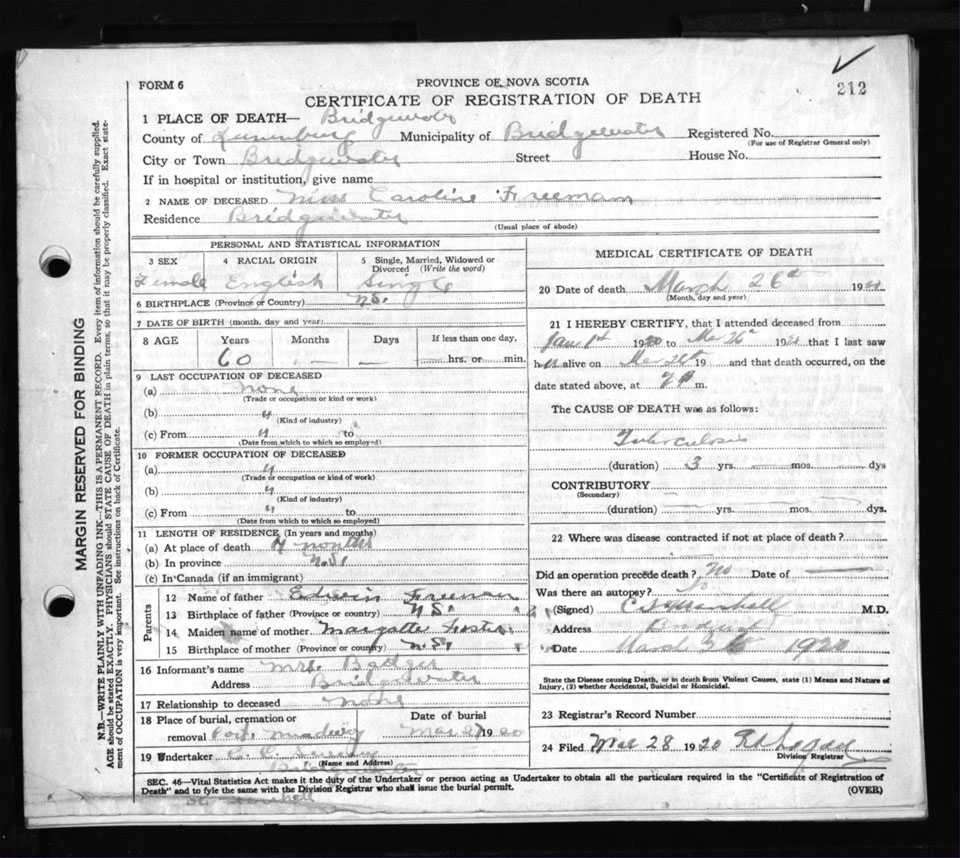 212
FORM 6
PROVINCE OF NOVA SCOTIA
CERTIFICATE OF REGISTRATION OF DEATH
1 PLACE OF DEATH— Bridgewater
County of Lunenburg Municipality of Bridgewater Registered No.
(For use of Registrar General only)
City or Town Bridgewater Street House No.
If in hospital or institution, give name
2 NAME OF DECEASED Miss Caroline Freeman
Residence Bridgewater
(Usual place of abode)
PERSONAL AND STATISTICAL INFORMATION
3 SEX 4 RACIAL ORIGIN 5 Single, Married, Widowed or Divorced (Write the word)
Female English Single
6 BIRTHPLACE (Province or Country) N.S.
7 DATE OF BIRTH (month, day and year)
8 AGE Years Months Days If less than one day,
60 — — hrs. or min.
9 LAST OCCUPATION OF DECEASED
(a) None
(Trade or occupation or kind or work)
(b) "
(Kind of industry)
(c) From " to
(Date from which to which so employed)
10 FORMER OCCUPATION OF DECEASED
(a) "
(Trade or occupation or kind of work)
(b) "
(Kind of industry)
(c) From " to
(Date from which to which so employed)
11 LENGTH OF RESIDENCE (In years and months)
(a) At place of death 4 months
(b) In province N.S.
(c) In Canada (if an immigrant)
Parents
12 Name of father Edwin Freeman
13 Birthplace of father (Province or country) N.S.
14 Maiden name of mother Margatte Foster
15 Birthplace of mother (Province or country) N.S.
16 Informant's name Mrs. Badger
Address Bridgewater
17 Relationship to deceased None
18 Place of burial, cremation or removal Port Date of burial Mar 27 1920
19 Undertaker
(Name and Address)
MEDICAL CERTIFICATE OF DEATH
20 Date of death March 26th 19
(Month, day and year)
21 I HEREBY CERTIFY, that I attended deceased from
Jan 1st 1920 to Mar 26th 19 that I last saw
her alive on Mar 19 and that death occurred, on the
date stated above, at m.
The CAUSE OF DEATH was as follows:
Tuberculosis
(duration) 3 yrs. mos. dys
CONTRIBUTORY
(Secondary)
(duration) — yrs. — mos. — dys.
22 Where was disease contracted if not at place of death?
Did an operation precede death? No Date of —
Was there an autopsy?
(Signed) Marshall M.D.
Address
Date March 1920
State the Disease causing Death, or in death from Violent Causes, state (1) Means and Nature of
Injury, (2) whether Accidental, Suicidal or Homicidal.
23 Registrar's Record Number
24 Filed Mar 28 1920
Division Registrar
SEC. 46—Vital Statistics Act makes it the duty of the Undertaker or person acting as Undertaker to obtain all the particulars required in the "Certificate of Registration of
Death" and to fyle the same with the Division Registrar who shall issue the burial permit.
(OVER)
MARGIN RESERVED FOR BINDING
N.B.—WRITE PLAINLY WITH UNFADING INK—THIS IS A PERMANENT RECORD. Every item of information should be carefully supplied.
AGE should be stated EXACTLY. PHYSICIANS should STATE CAUSE OF DEATH in plain terms, so that it may be properly classified. Exact statement
of OCCUPATION is very important. See instructions on back of Certificate.